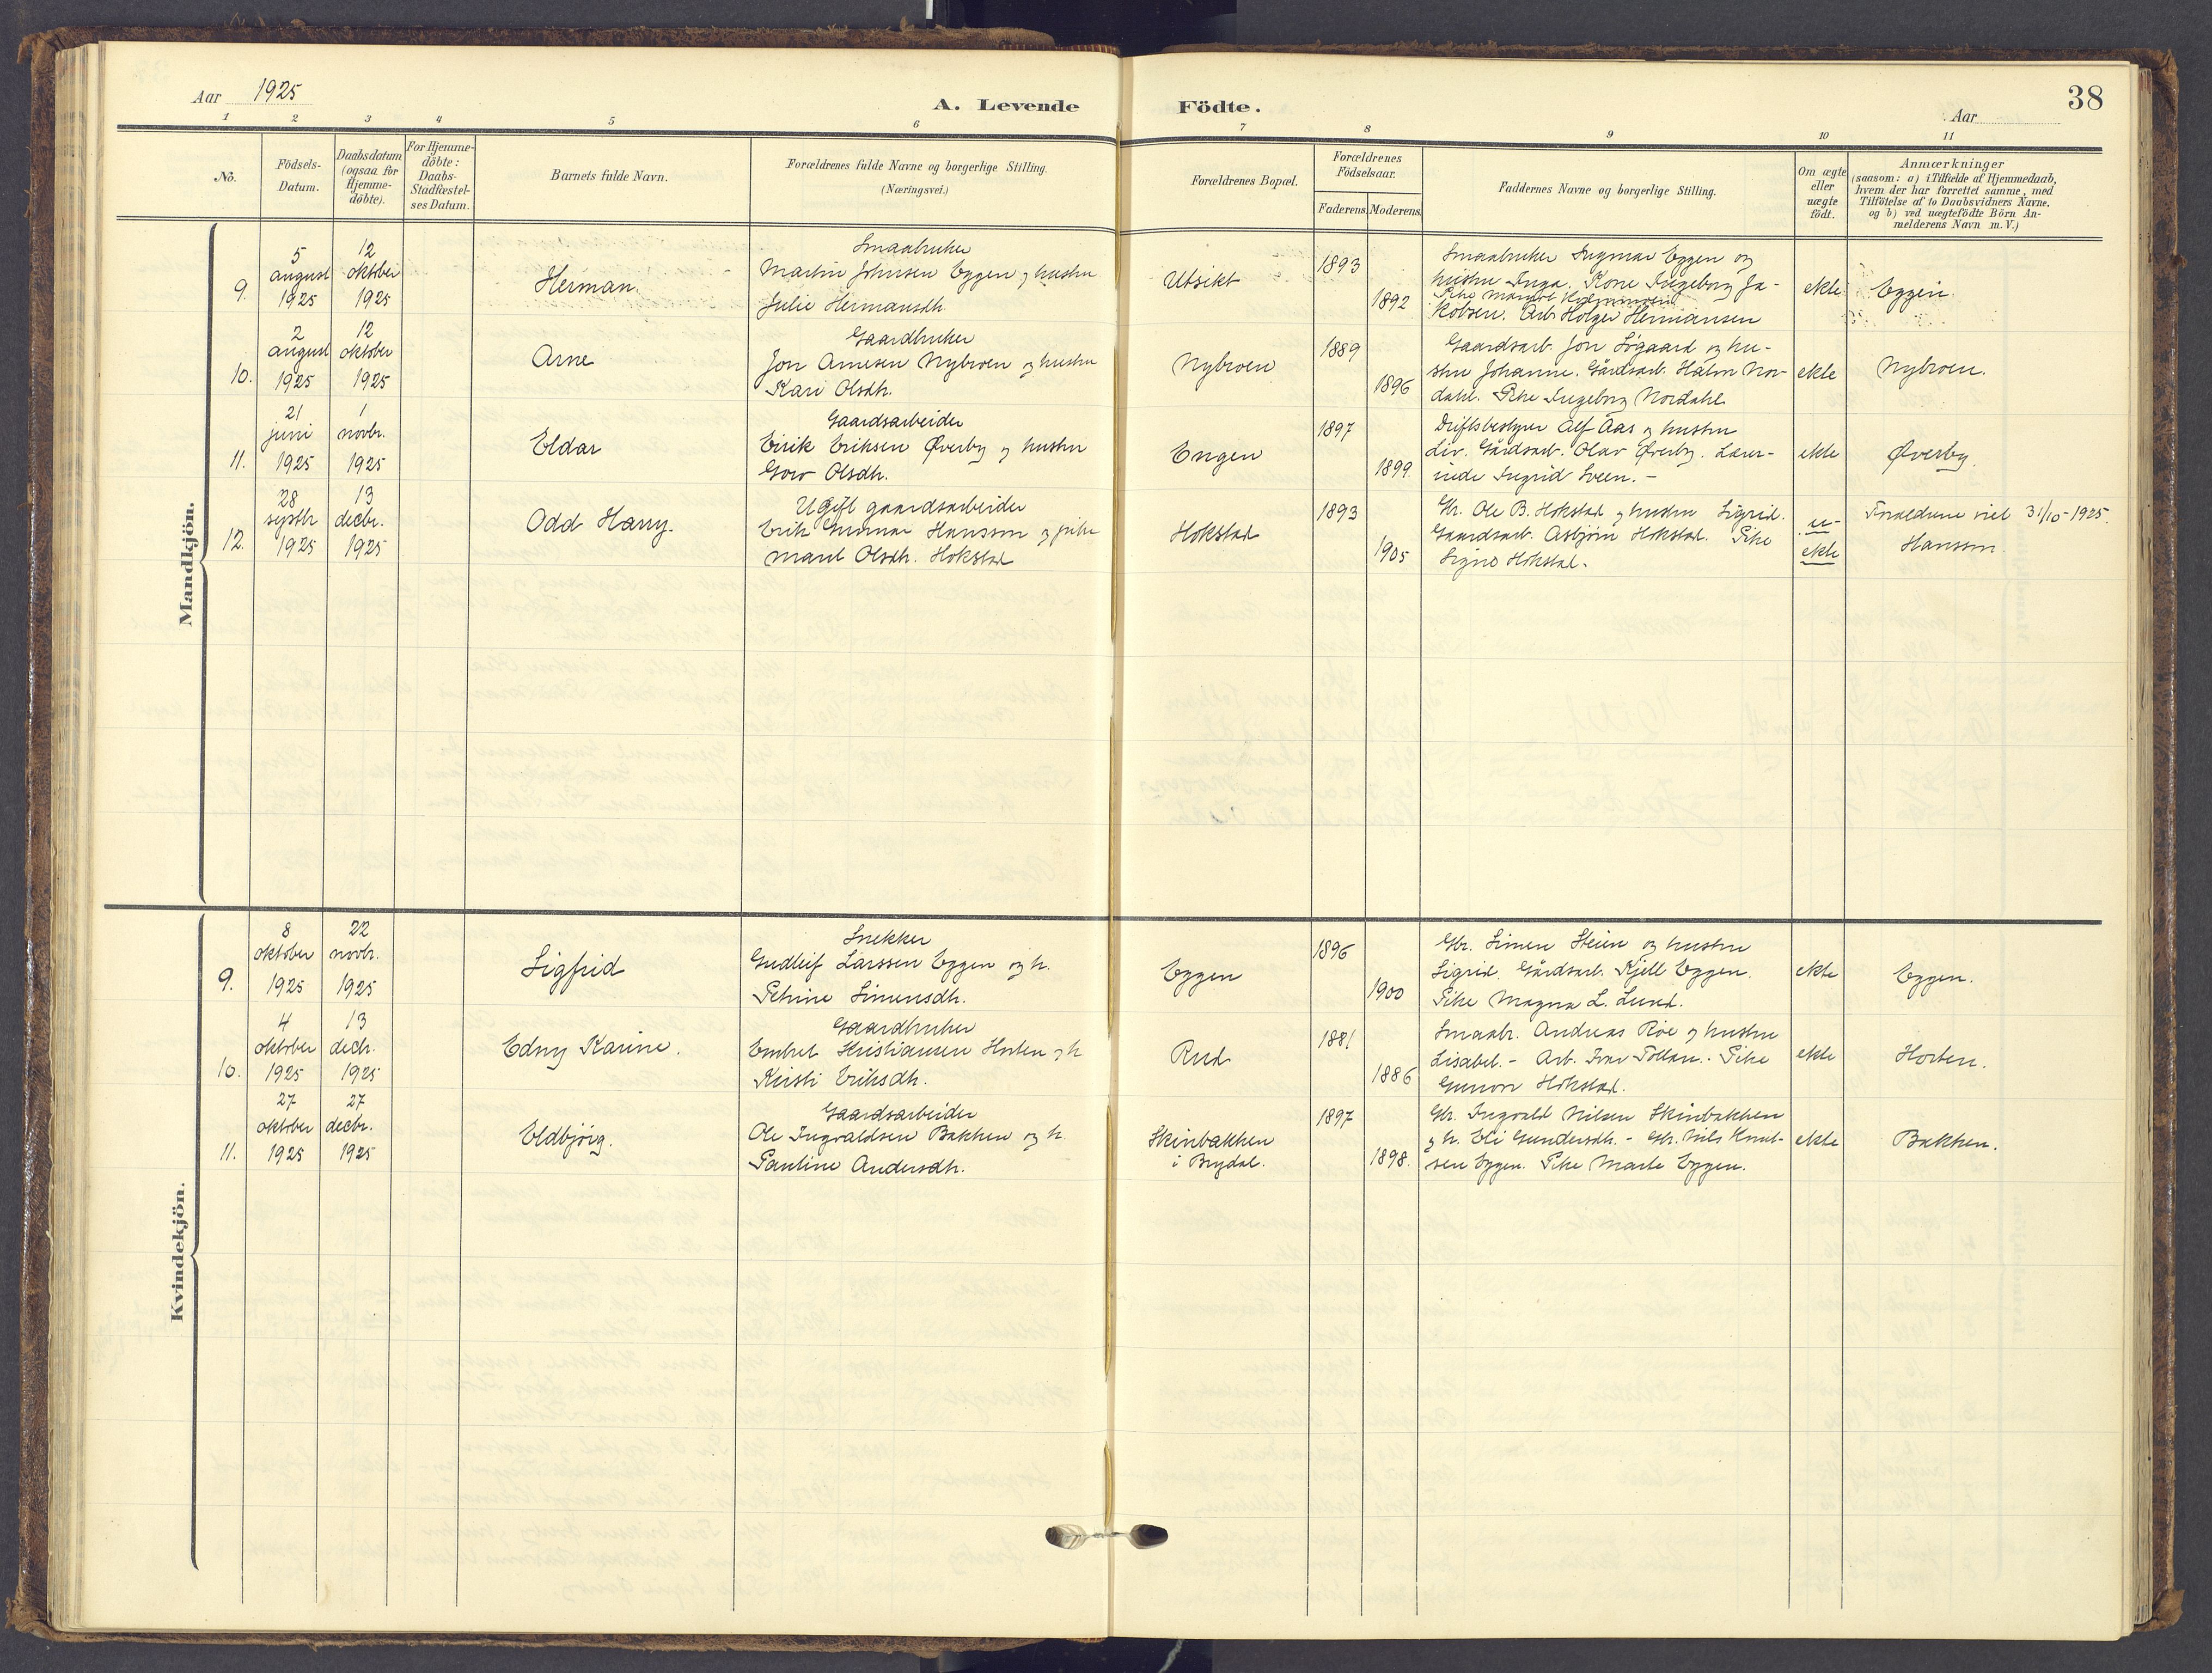 Aar 1925
A. Levende Födte.
Aar
38
1 2 3 4 5 6 7 8 9 10 11
No.
Födsels-
Datum.
Daabsdatum
(ogsaa for
Hjemme-
döbte).
For Hjemme-
döbte:
Daabs-
Stadfæstel-
ses Datum.
Barnets fulde Navn.
Forældrenes fulde Navne og borgerlige Stilling.
(Næringsvei.)
Forældrenes Bopæl.
Forældrenes
Födselsaar.
Faderens. Moderens.
Faddernes Navne og borgerlige Stilling.
Om ægte
eller
uægte
födt.
Anmærkninger
(saasom: a) i Tilfælde af Hjemmedaab,
hvem der har forrettet samme, med
Tilföielse af to Daabsvidners Navne,
og b) ved uægtefödte Börn An-
melderens Navn m. V.)
Mandkjön.
9.
5
august
1925
12
oktober
1925
Herman.
Smaabruker
Martin Johnsen Eggen og hustru
Julie Hermansdh.
Utsikt
1893
1892
Smaabruker Ingmar Eggen og
hustru Inga. Kone Ingeborg Ja-
Pike Margot
kobsen. Arb. Holger Hermansen
ekte
Eggen.
10.
2
august
1925
12
oktober
1925
Arne
Gaardbruker
Jon Arnesen Nybroen og hustru
Kari Olsdh.
Nybroen
1889
1896
Gaardsarb. Jon Søgaard og hu-
stru Johanne. Gårdsarb. Halvor Nor-
dahl. Pike Ingeborg Nordahl.
ekte
Nybroen.
11.
21
juni
1925
1
novbr.
1925
Eldar
Gaardsarbeider
Eirik Eriksen Øverby og hustru
Goro Olsdh.
Engen
1897
1899.
Driftsbestyrer Alf Aas og hustru
Liv. Gårdsarb. Olav Øverby. Lærer-
inde Ingrid Sveen. -
ekte
Øverby.
12.
28
septbr
1925
13
decbr.
1925
Odd Harry.
Ugift gaardsarbeider
Erik Gunnar Hansson og pike
Marit Olsdh. Hokstad
Hokstad
1893
1905
Gbr. Ole B. Hokstad og hustru Sigrid.
Gaardsarb. Asbjørn Hokstad. Pike
Signe Hokstad.
u-
ekte
Forældrene viet 31/10-1925.
Hansson.
Kvindekjön.
9.
8
oktober
1925
22
novbr.
1925
Sigfrid
Snekker
Gudleif Larssen Eggen og h.
Petrine Simensdh.
Eggen
1896
1900
Gbr. Simen Steien og hustru
Sigrid. Gårdsarb. Kjell Eggen.
Pike Magna L. Lund.
ekte
Eggen.
10.
4
oktober
1925
13
decbr.
1925
Edny Karine.
Gaardbruker
Embret Kristiansen Horten og h
Kirsti Eriksdh.
Rud
1881
1886
Smaabr. Andreas Røe og hustru
Lisabet. - Arb. Ivar Tollan. Pike
Gunvor Hokstad.
ekte
Horten.
11.
27
oktober
1925
27
decbr.
1925
Eldbjörg.
Gaardsarbeider
Ole Ingvaldsen Bakken og h.
Pauline Andersdh.
Skinbakken
i Brydal.
1897
1898.
Gbr. Ingvald Nilsen Skinbakken
og h. Eli Gundersdh. - Gbr. Nils Knut-
sen Eggen. Pike Marte Eggen.
ekte
Bakken.